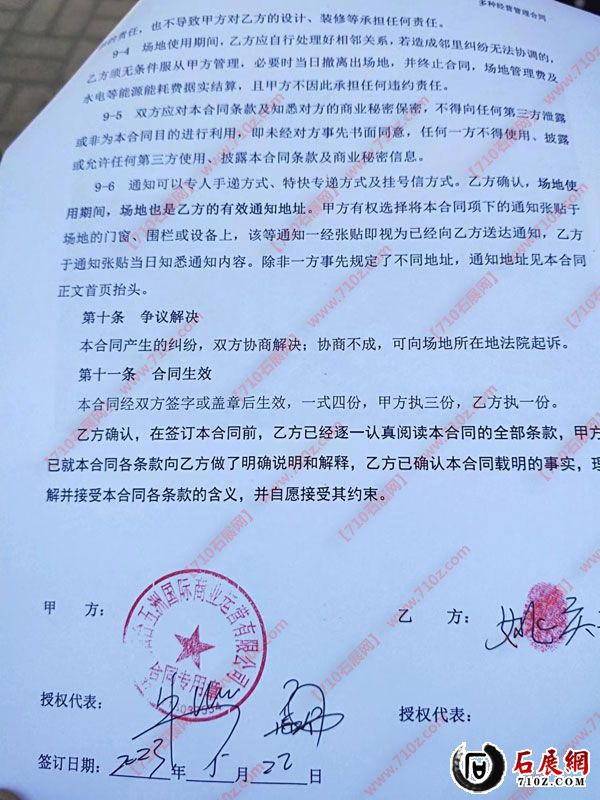 多种经营管理合同
的责任，也不导致甲方对乙方的设计、装修等承担任何责任。
9-4 场地使用期间，乙方应自行处理好相邻关系，若造成邻里纠纷无法协调的，
乙方须无条件服从甲方管理，必要时当日撤离出场地，并终止合同，场地管理费及
水电等能源能耗费据实结算，且甲方不因此承担任何违约责任。
9-5 双方应对本合同条款及知悉对方的商业秘密保密，不得向任何第三方泄露
或非为本合同目的进行利用，即未经对方事先书面同意，任何一方不得使用、披露
或允许任何第三方使用、披露本合同条款及商业秘密信息。
9-6 通知可以专人手递方式、特快专递方式及挂号信方式。乙方确认，场地使
用期间，场地也是乙方的有效通知地址。甲方有权选择将本合同项下的通知张贴于
场地的门窗、围栏或设备上，该等通知一经张贴即视为已经向乙方送达通知，乙方
于通知张贴当日知悉通知内容。除非一方事先规定了不同地址，通知地址见本合同
正文首页抬头。
第十条 争议解决
本合同产生的纠纷，双方协商解决；协商不成，可向场地所在地法院起诉。
第十一条 合同生效
本合同经双方签字或盖章后生效，一式四份，甲方执三份，乙方执一份。
乙方确认，在签订本合同前，乙方已经逐一认真阅读本合同的全部条款，甲方
已就本合同各条款向乙方做了明确说明和解释，乙方已确认本合同载明的事实，理
解并接受本合同各条款的含义，并自愿接受其约束。
甲 方：
台五洲国际商业运营有限公司
合同专用章
乙 方：
姚庆
授权代表：
授权代表：
签订日期：2023年5月22日
【710石展网】
www.710z.com
石展網
710Z.COM